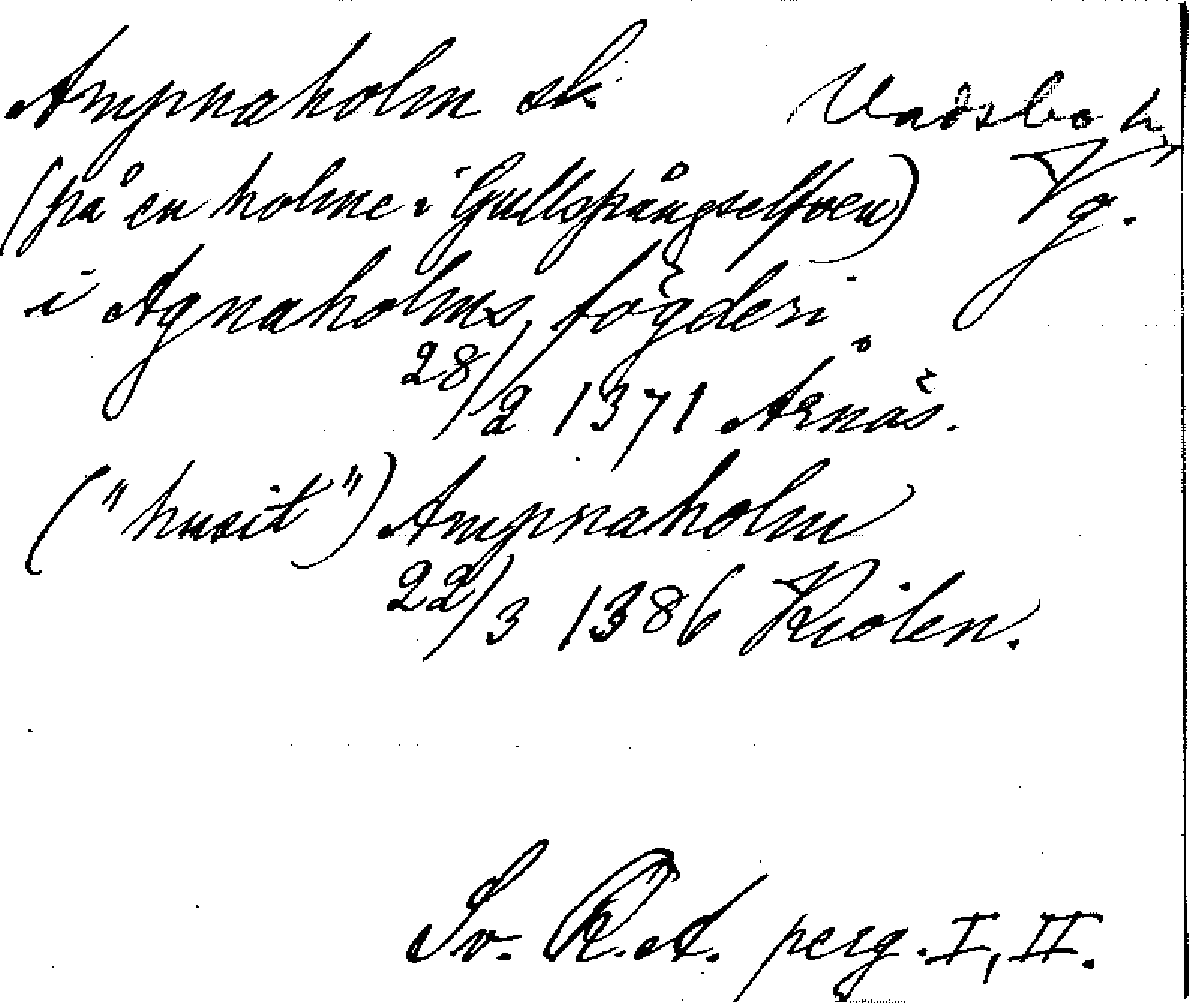 Ampnaholm sk. Vadsbo h,
(på en holme i Gullspångselfven) Vg.
i Agnaholms fögderi
28/2 1371 Årnäs.
("husit") Ampnaholm
22/3 1386 Kiölen.
Sv. R.A. perg. I, II.